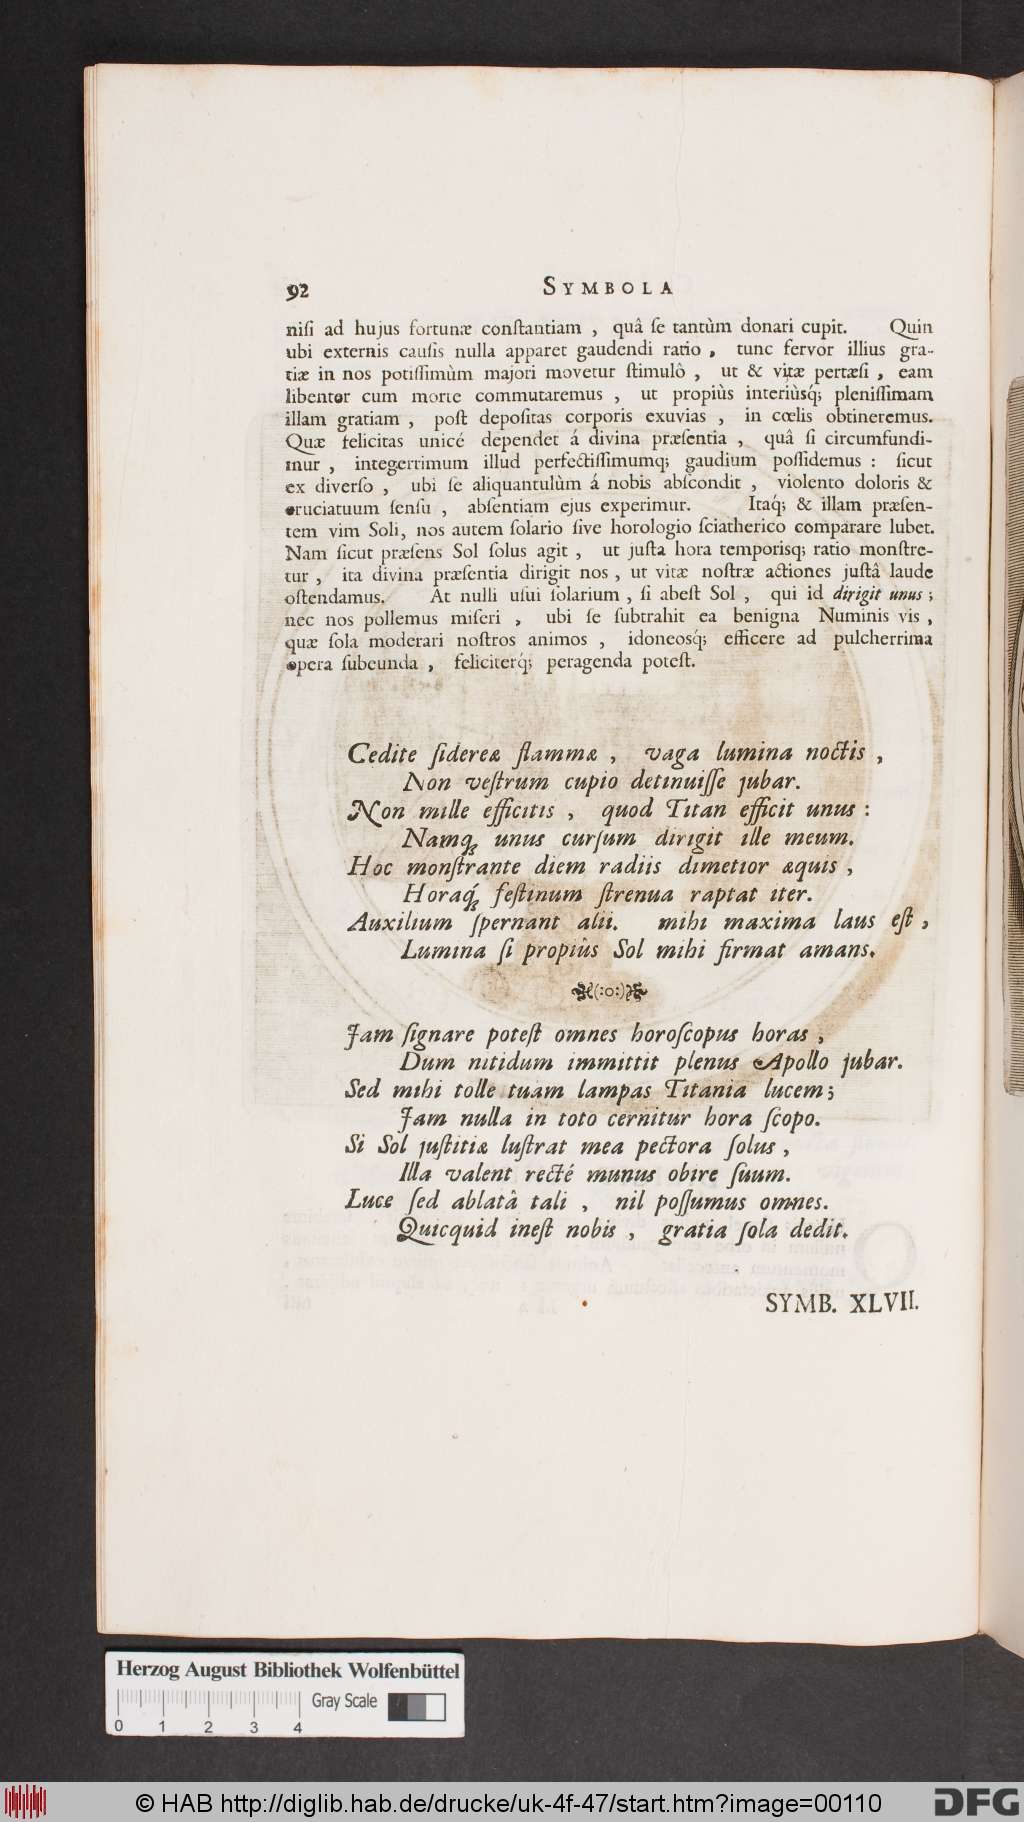 92 SYMBOLA
niſi ad hujus fortunæ conſtantiam , quâ ſe tantùm donari cupit. Quin
ubi externis cauſis nulla apparet gaudendi ratio , tunc fervor illius gra-
tiæ in nos potiſſimùm majori movetur ſtimulô , ut & vitæ pertæſi , eam
libenter cum morte commutaremus , ut propiùs interiùsq́; pleniſſimam
illam gratiam , poſt depoſitas corporis exuvias , in cœlis obtineremus.
Quæ felicitas unicé dependet á divina præſentia , quâ ſi circumfundi-
mur , integerrimum illud perfectiſſimumq; gaudium poſſidemus : ſicut
ex diverſo , ubi ſe aliquantulùm á nobis abſcondit , violento doloris &
cruciatuum ſenſu , abſentiam ejus experimur. Itaq́; & illam præſen-
tem vim Soli, nos autem ſolario ſive horologio ſciatherico comparare lubet.
Nam ſicut præſens Sol ſolus agit , ut juſta hora temporisq; ratio monſtre-
tur , ita divina præſentia dirigit nos , ut vitæ noſtræ actiones juſtâ laude
oſtendamus. At nulli uſui ſolarium , ſi abeſt Sol , qui id dirigit unus ;
nec nos pollemus miſeri , ubi ſe ſubtrahit ea benigna Numinis vis ,
quæ ſola moderari noſtros animos , idoneosq́; efficere ad pulcherrima
opera ſubeunda , feliciterq́; peragenda poteſt.
Cedite ſidereæ flammæ , vaga lumina noctis ,
Non veſtrum cupio detinuiſſe jubar.
Non mille efficitis , quod Titan efficit unus :
Namq; unus curſum dirigit ille meum.
Hoc monſtrante diem radiis dimetior æquis ,
Horaq́; feſtinum ſtrenua raptat iter.
Auxilium ſpernant alii. mihi maxima laus eſt ,
Lumina ſi propiùs Sol mihi firmat amans.
(:o:)
Jam ſignare poteſt omnes horoſcopus horas ,
Dum nitidum immittit plenus Apollo jubar.
Sed mihi tolle tuam lampas Titania lucem;
Jam nulla in toto cernitur hora ſcopo.
Si Sol juſtitiæ luſtrat mea pectora ſolus ,
Illa valent recté munus obire ſuum.
Luce ſed ablatâ tali , nil poſſumus omnes.
Quicquid ineſt nobis , gratia ſola dedit.
SYMB. XLVII.
Herzog August Bibliothek Wolfenbüttel
Gray Scale
0 1 2 3 4
© HAB http://diglib.hab.de/drucke/uk-4f-47/start.htm?image=00110
DFG